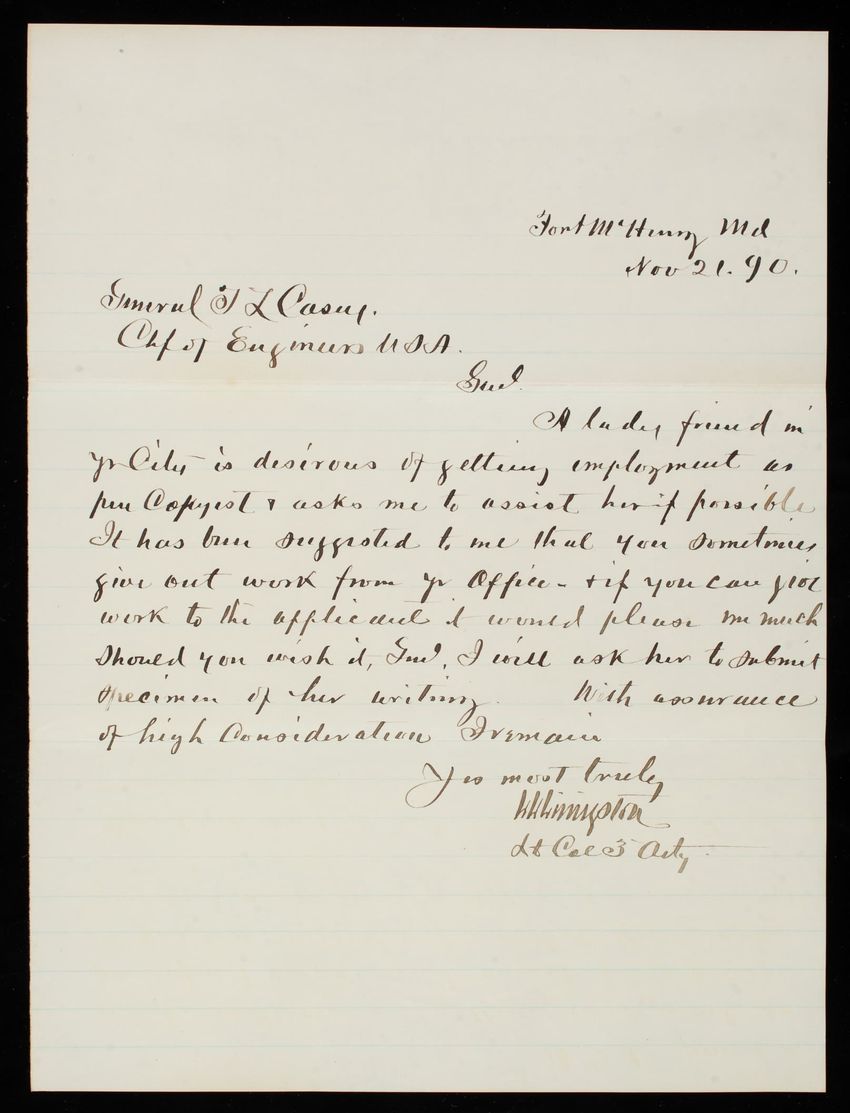 Fort McHenry Md
Nov 21. 90.
General T L Casey.
Chf of Engineers USA.
Genl.
A lady friend in
yr City is desirous of getting employment as
pen Copyist & asks me to assist her if possible
It has been suggested to me that you sometimes
give out work from yr Office - & if you can give
work to the applicant it would please me much
Should you wish it, Genl, I will ask her to submit
specimen of her writing. With assurance
of high Consideration I remain
Yrs most truly
LLLivingston
Lt Col 3 Arty.